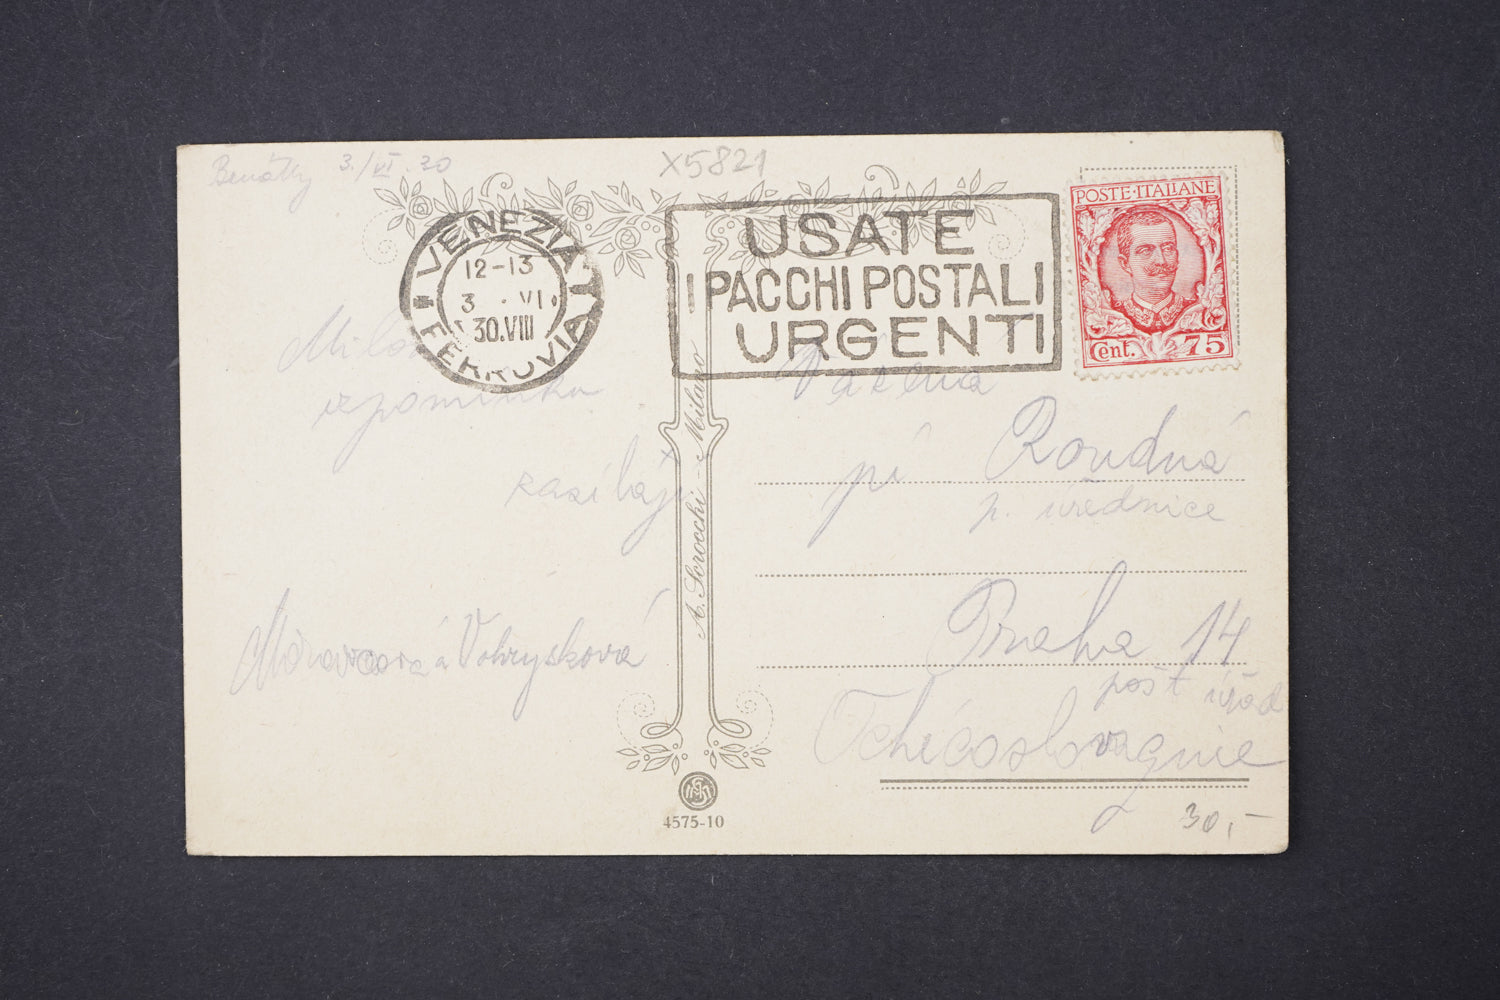 Benátky 3./VI. 30
X5821
VENEZIA
FERROVIA
12-13
3 VI
30.VIII
USATE
I PACCHI POSTALI
URGENTI
POSTE·ITALIANE
Cent. 75
Milou
vzpomínku
zasílají
Moravcová a Vohryzková
A. Scrocchi - Milano
4575-10
Vážená
pí Roudná
p. úřednice
Praha 14
pošt úřad
Tchécoslovaquie
30,-